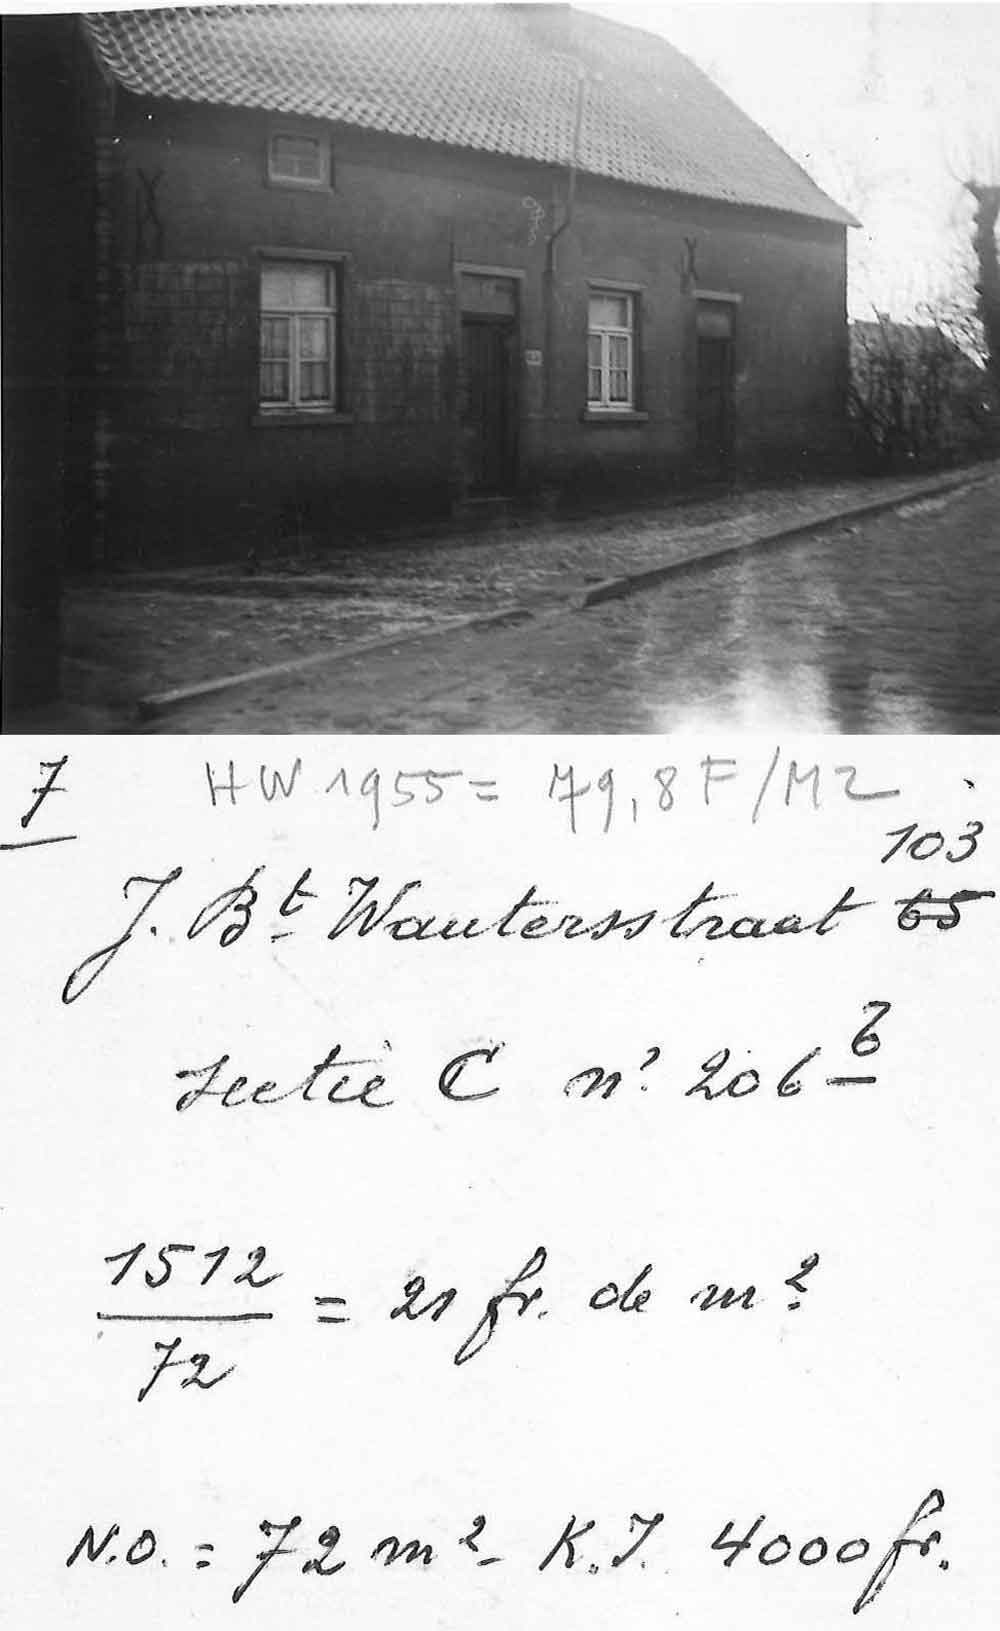 7 HW 1955 = 79,8 F/M2
103
J. Bt Wautersstraat 65
sectie C n° 206 b
1512
72
= 21 fr. de m²
N.O. = 72 m² - K.I. 4000 fr.